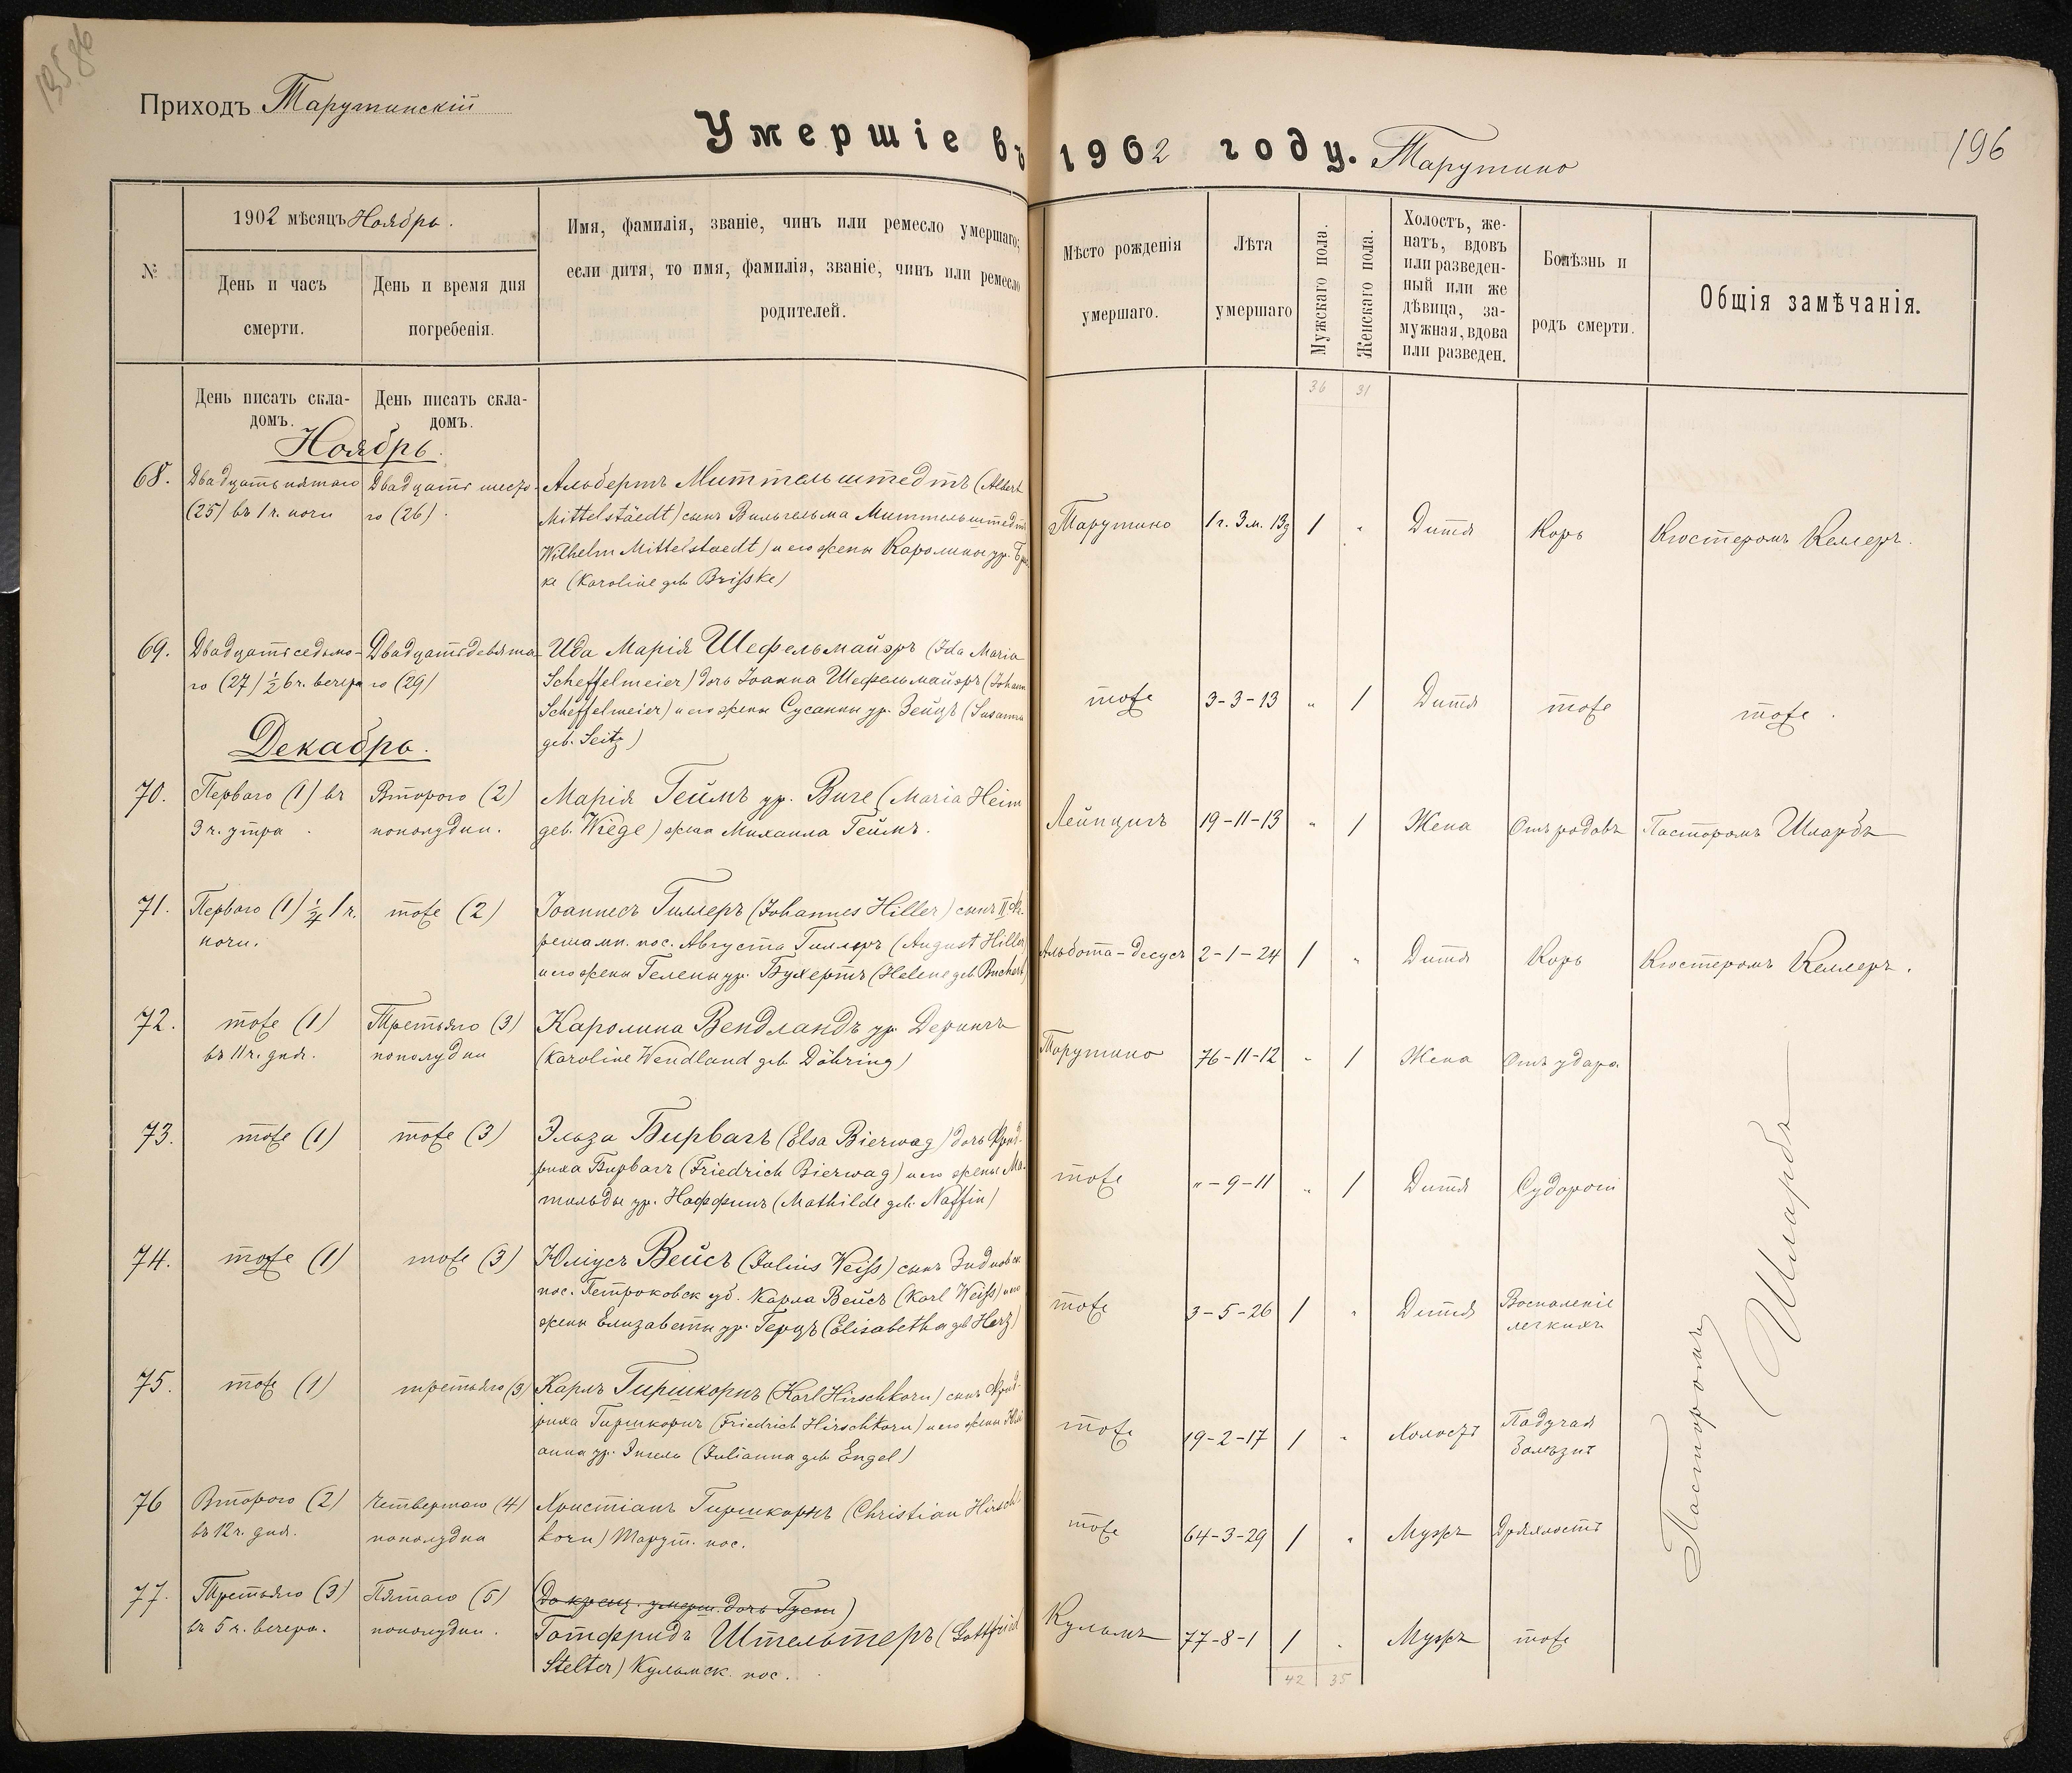 Приходъ Тарутинскій
Умершіе въ 1902 году. Тарутино
196
№
1902 мѣсяцъ Ноябрь.
День и часъ смерти.
День и время дня погребенія.
Имя, фамилія, званіе, чинъ или ремесло умершаго;
если дитя, то имя, фамилія, званіе, чинъ или ремесло
родителей.
Мѣсто рожденія умершаго.
Лѣта умершаго
Мужскаго пола.
Женскаго пола.
Холостъ, же-
натъ, вдовъ
или разведен-
ный или же
дѣвица, за-
мужная, вдова
или разведен.
Болѣзнь и
родъ смерти.
Общія замѣчанія.
День писать скла-
домъ.
День писать скла-
домъ.
36 31
Ноябрь.
68. Двадцать пятаго Двадцать шесто- Альбертъ Миттельштедтъ (Albert
(25) въ 1 ч. ночи го (26). Mittelstäedt) сынъ Вильгельма Миттельштедтъ
Wilhelm Mittelstaedt) и его жены Каролины ур.
ке (Karoline geb Brisske)
Тарутино 1 г. 3 м. 13 д 1 " Дитя Корь Кюстеромъ Келлеръ.
69. Двадцать седьмо- Двадцать девята- Ида Марія Шефельмайэръ (Ida Maria
го (27) ½ 6 ч. вечера го (29) Scheffelmeier) дочь Іоанна Шефельмайэръ (Johann
Scheffelmeier) и его жены Сусанны ур. Зейцъ (Susanna
geb. Seitz)
тоже 3-3-13 " 1 Дитя тоже тоже.
Декабрь.
70. Перваго (1) въ Второго (2) Марія Геймъ ур. Виге (Maria Heim
3 ч. утра. пополудни. geb. Wiege) жена Михаила Геймъ.
Лейпцигъ 19-11-13 " 1 Жена Отъ родовъ Пасторомъ Шлярбъ
71. Перваго (1) ¼ 1 ч. тоже (2) Іоаннесъ Гиллеръ (Johannes Hiller) сынъ II
ночи. пос. Августа Гиллеръ (August Hiller
и его жены Гелены ур. Бухертъ (Helene geb Buchert)
2-1-24 1 " Дитя Корь Кюстеромъ Келлеръ.
72. тоже (1) Третьяго (3) Каролина Вендландъ ур. Дерингъ
въ 11 ч. дня. пополудни (Karoline Wendland geb Döhring)
Тарутино 76-11-12 " 1 Жена Отъ удара
73. тоже (1) тоже (3) Эльза Бирвагъ (Elsa Bierwag) дочь Фрид-
риха Бирвагъ (Friedrich Bierwag) и его жены Ма-
тильды ур. Наффинъ (Mathilde geb. Naffin)
тоже "-9-11 " 1 Дитя Судороги
74. тоже (1) тоже (3) Юліусъ Вейсъ (Julius Weiss) сынъ
пос. Петроковск. губ. Карла Вейсъ (Karl Weiss) и его
жены Елизаветы ур. Герцъ (Elisabetha geb Herz)
тоже 3-5-26 1 " Дитя Воспаленіе
легкихъ
75. тоже (1) третьяго (3) Карлъ Гиршкорнъ (Karl Hirschkorn) сынъ Фрид-
риха Гиршкорнъ (Friedrich Hirschkorn) и его жены Юлі-
анна ур. Энгель (Julianna geb Engel)
тоже 19-2-17 1 " Холостъ Падучая
болѣзнь
76 Второго (2) Четвертаго (4) Христіанъ Гиршкорнъ (Christian Hirsch-
въ 12 ч. дня. пополудни korn) Тарут. пос.
тоже 64-3-29 1 " Мужъ Дряхлость
77. Третьяго (3) Пятаго (5) (До крещ. умерш. дочь)
въ 5 ч. вечера. пополудни. Готфридъ Штельтеръ (Gottfried
Stelter) Кульмск. пос.
Кульмъ 77-8-1 1 " Мужъ тоже
42 35
Пасторомъ Шлярбъ